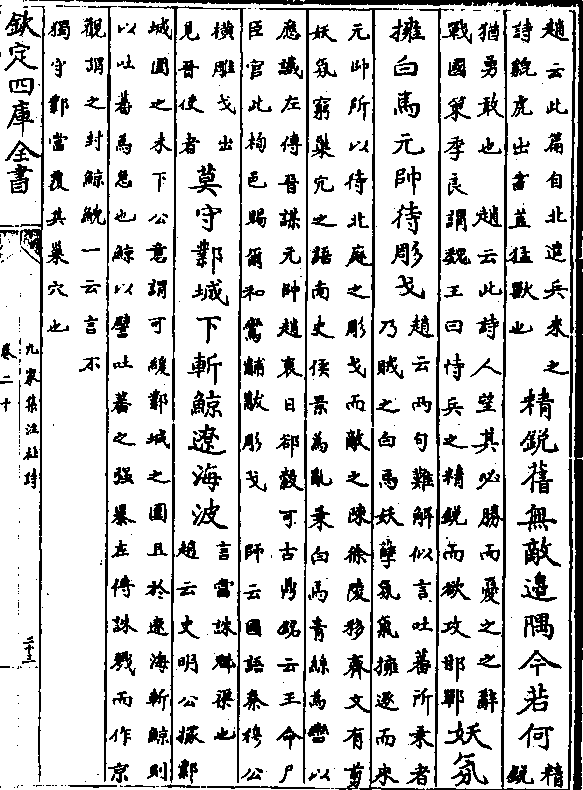 趙云此篇自北邉兵來之
詩貔虎出書蓋猛獸也
精銳舊無敵邉隅今若何
精
銳
猶勇敢也 趙云此詩人望其必勝而憂之之辭
戰國策季良謂魏王曰恃兵之精銳而欲攻邯鄲
妖氛
擁白馬元帥待彫戈
趙云兩句難解似言吐蕃所乗者
乃賊之白馬妖孽氛氣擁遂而來
元帥所以待北庭之彫戈而敵之陳徐陵移齊文有剪
妖氛窮巢穴之語南史侯景為亂乗白馬青絲為轡以
應讖左傳晉謀元帥趙衰曰郤縠可古鼎銘云王命尸
臣官此栒邑賜爾和鸞黼黻彫戈 師云國語秦穆公
橫雕戈出
見晉使者
莫守鄴城下斬鯨遼海波
言當誅醜渠也
趙云史明公據鄴
城圍之未下公意謂可緩鄴城之圍且於遼海斬鯨則
以吐蕃為急也鯨以譬吐蕃之强暴左傳誅戮而作京
觀謂之封鯨鯢一云言不
獨守鄴當覆其巢穴也
欽定四庫全書
九家集注杜詩
卷二十
二十三